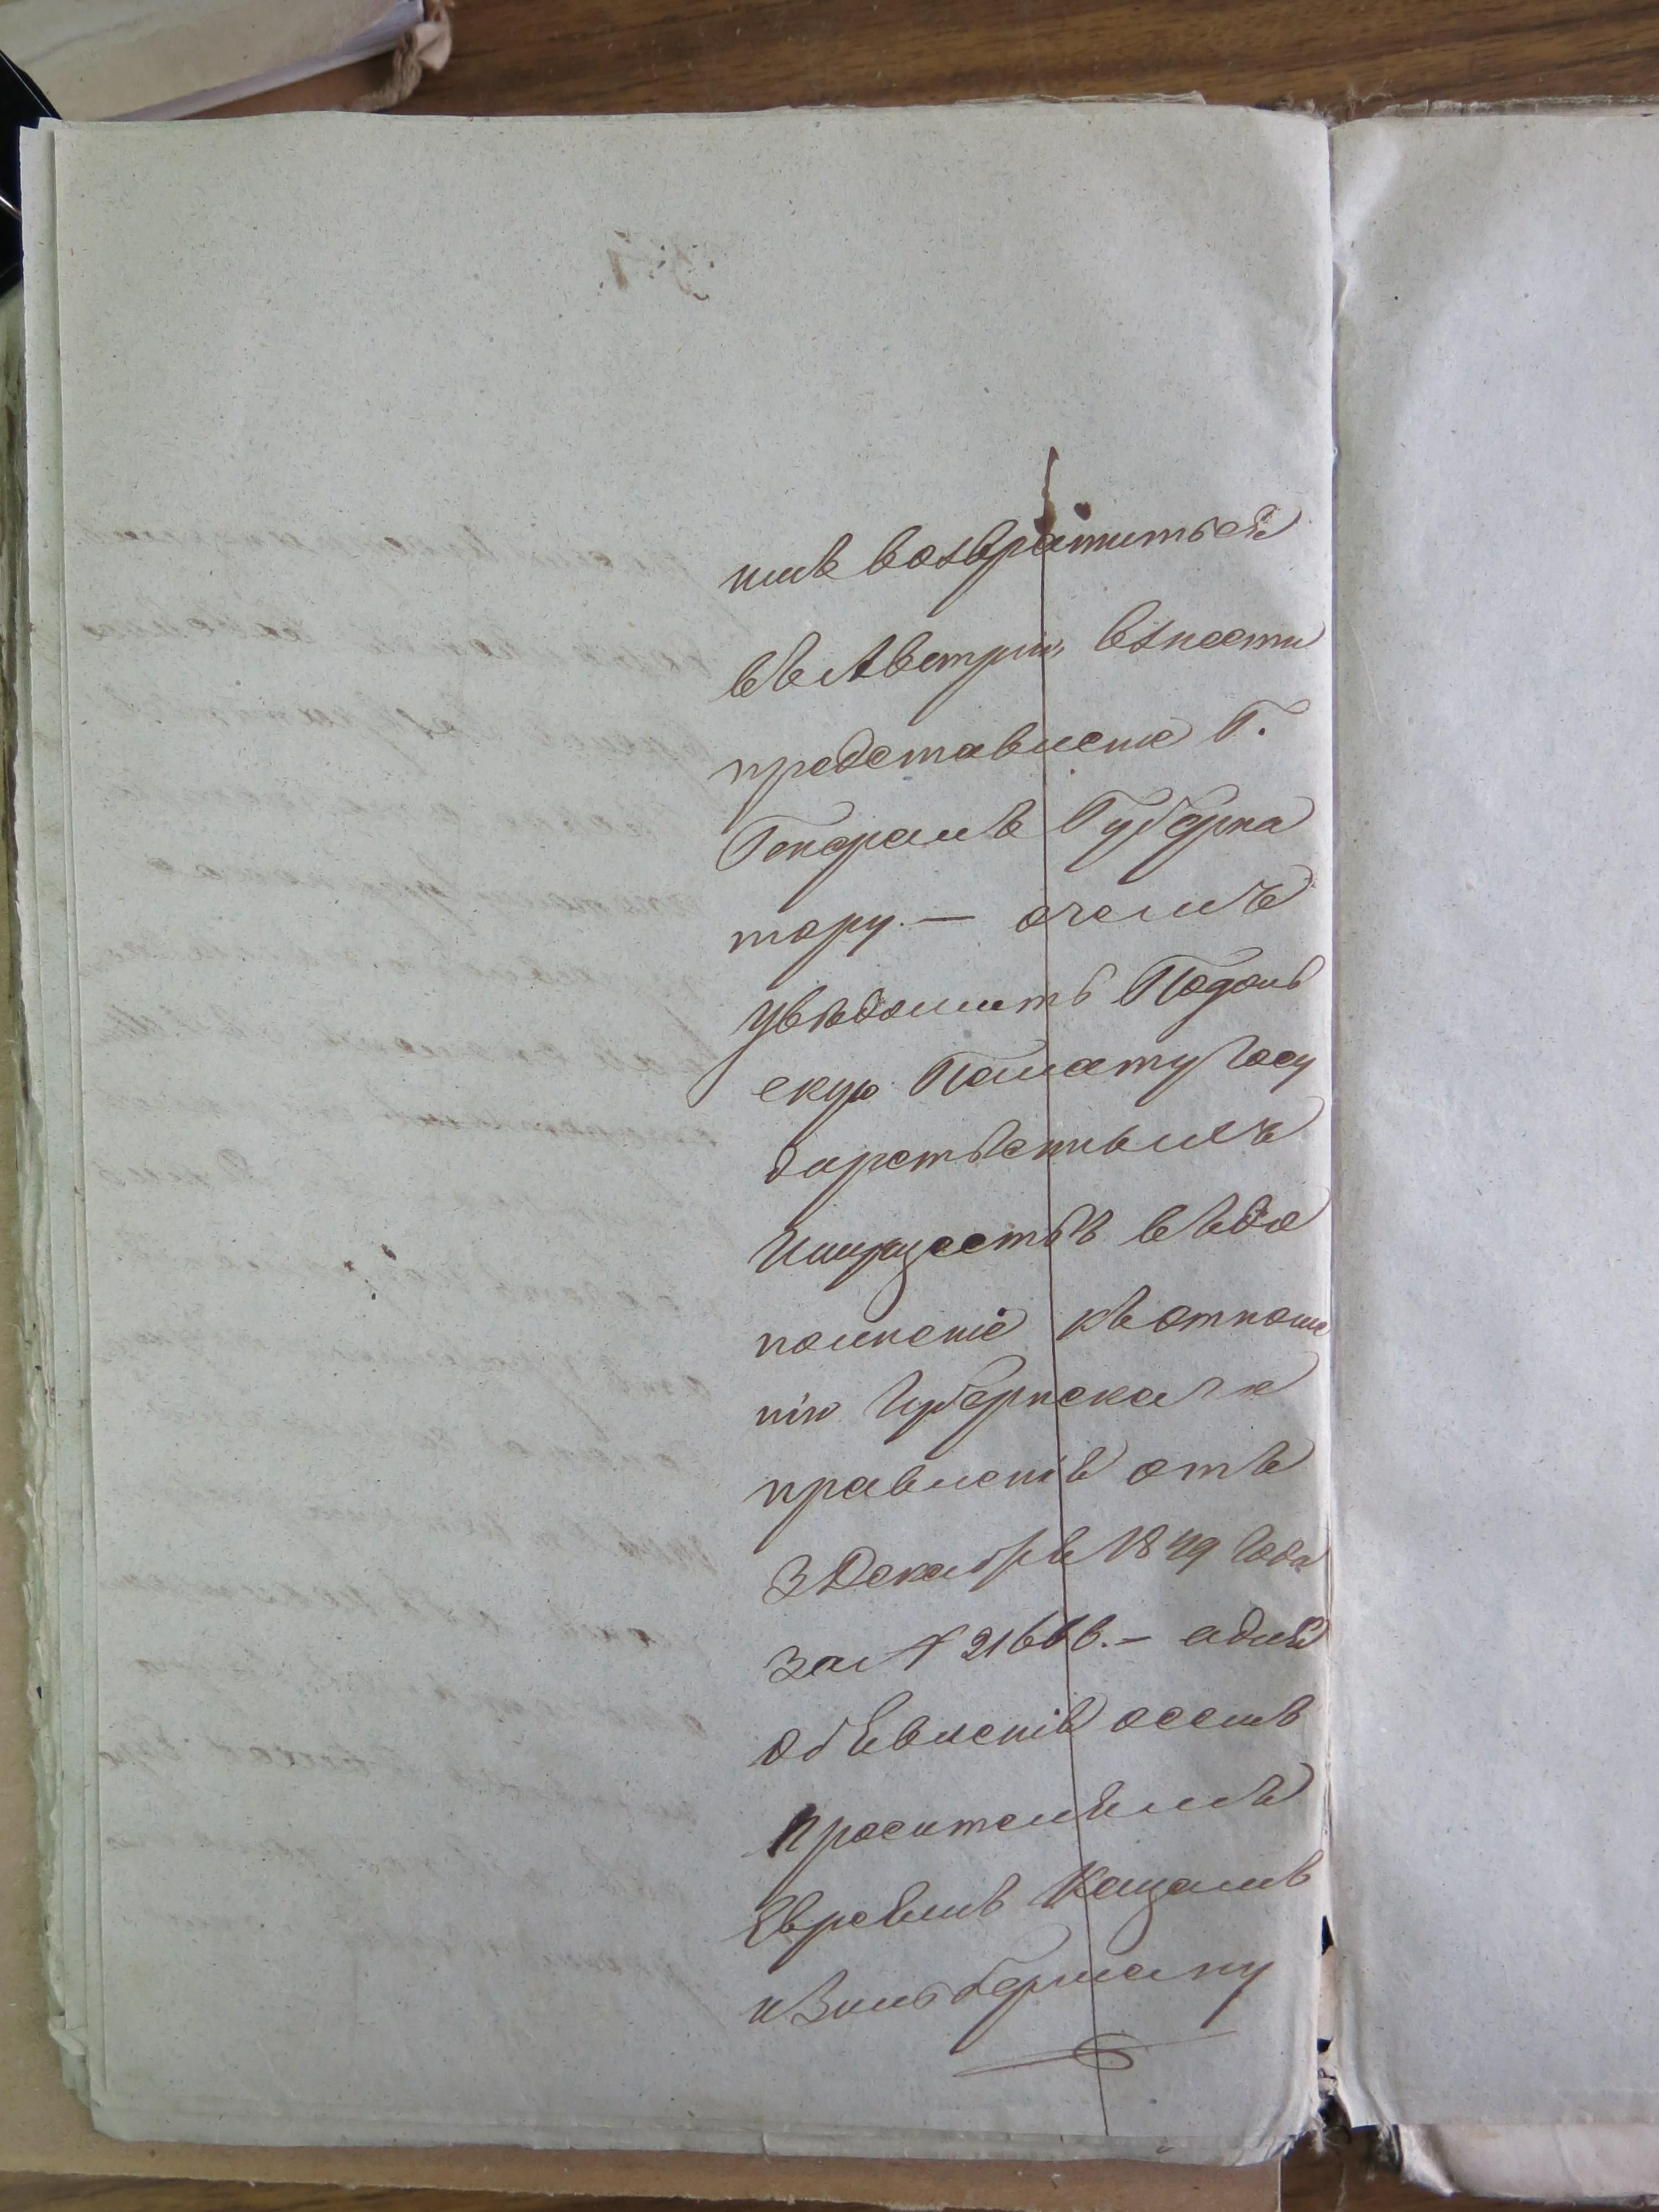 нимъ возвратиться
въ Австрію, внести
представленіе Г.
Генералъ Губерна
тору. — о чемъ
увѣдомить Подоль
скую Палату Госу
дарственныхъ
Имуществъ въ до
полненіе къ отноше
нію Губернскаго
правленія отъ
3 Декабря 1849 года
за № 21666. — а для
объявленія о семъ
просителямъ
Евреямъ Кацамъ
и Зильберману